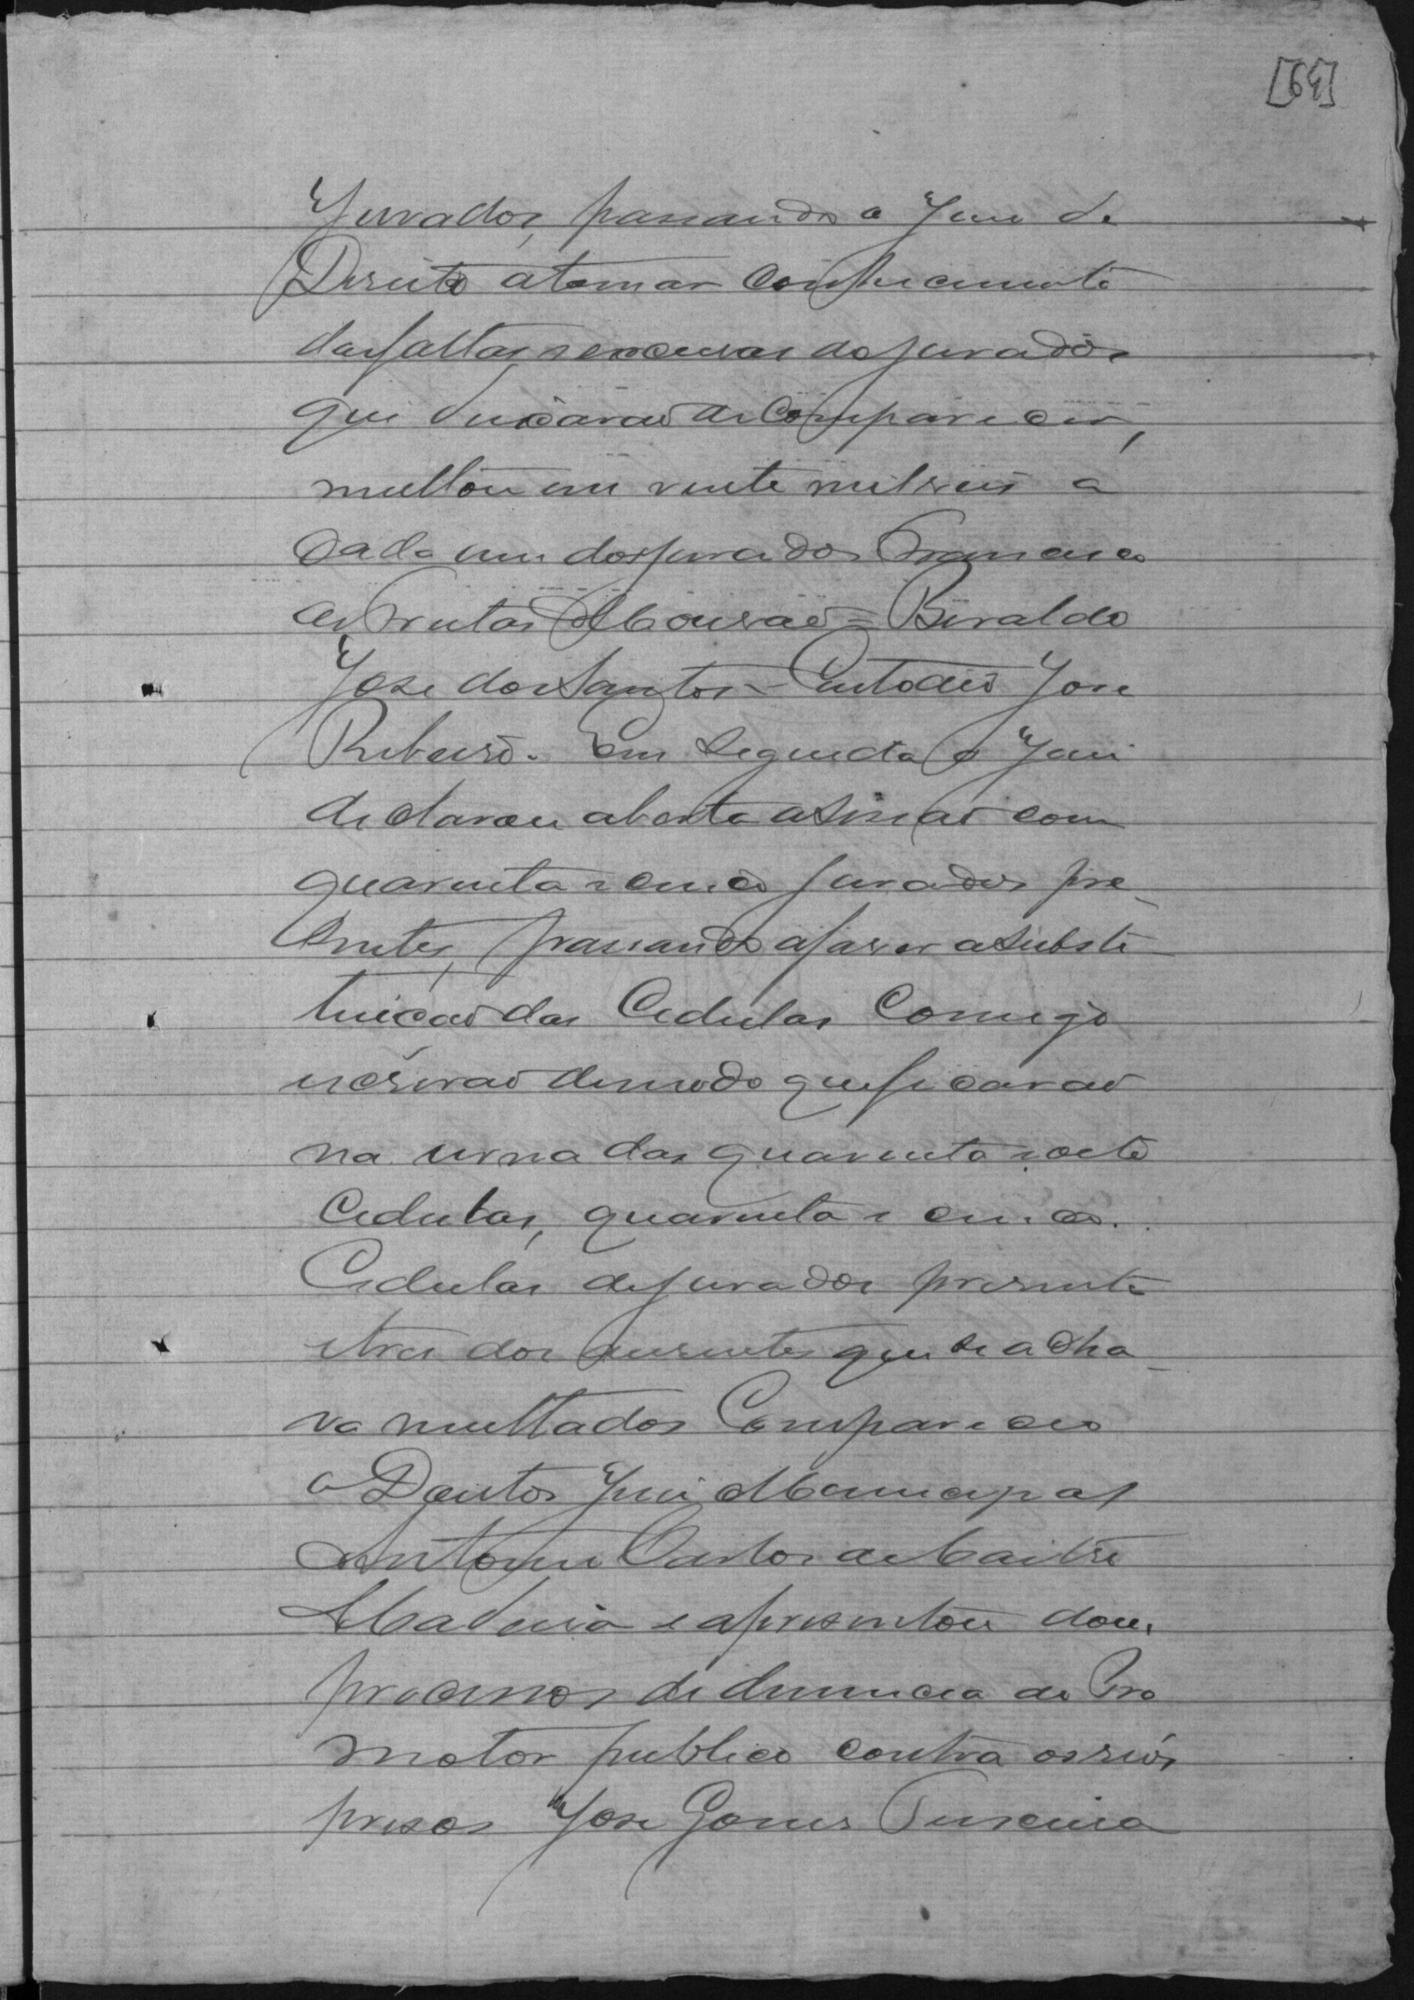 [64]
Jurados, passando o Juiz de
Direito a tomar conhecimento
das faltas e excusas dos jurados
que deixarão de comparecer,
multou em vinte milreis a
cada um dos jurados Francisco
de Freitas Mourão = Beraldo
José dos Santos - Custodio José
Ribeiro. Em seguida o Juiz
declarou aberta a sessão com
quarenta e cinco jurados pre-
sentes, passando a faser a substi-
tuição das Cedulas Comigo
escrivão de modo que ficarão
na urna das quarenta e oito
Cedulas, quarenta e cinco.
Cedulas de jurados presente
e tres dos ausentes que se acha-
va multados Compareceo
o Doutor Juiz Municipal
Antonio Carlos de Castro
Madeira e apresentou dous
processos de denuncia do Pro
motor publico contra os reós
presos José Gomes Teixeira